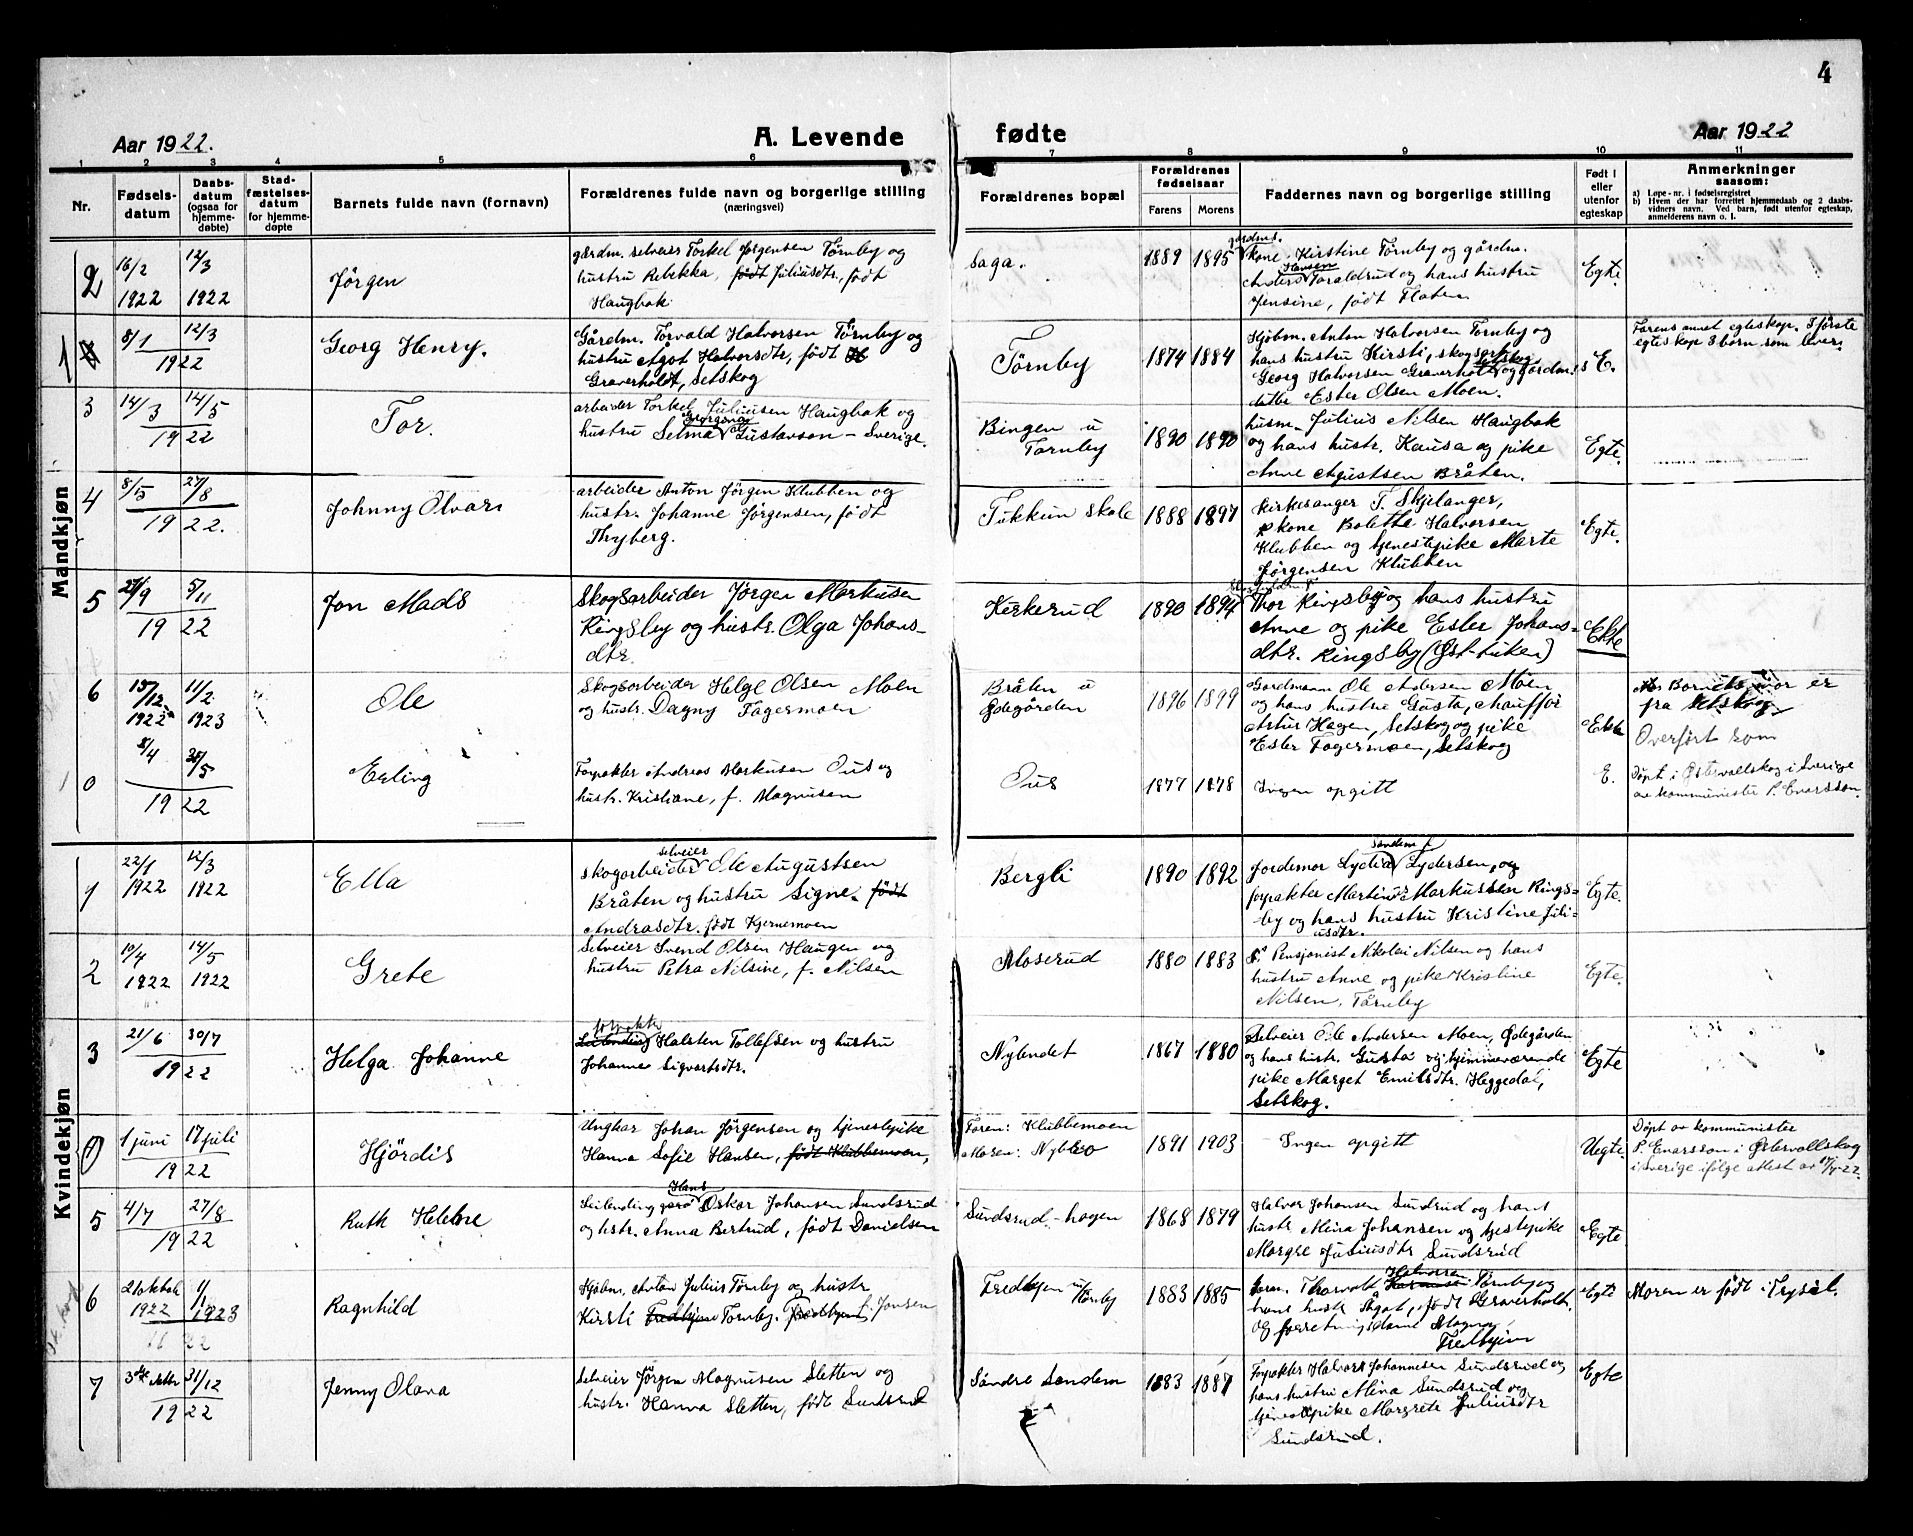 4
Aar 1922.
A. Levende fødte
Aar 1922
1 2 3 4 5 6 7 8 9 10 11
Nr.
Fødsels-
datum
Daabs-
datum
(ogsaa for
hjemme-
døbte)
Stad-
fæstelses-
datum
for hjemme-
døpte
Barnets fulde navn (fornavn)
Forældrenes fulde navn og borgerlige stilling
(næringsvei)
Forældrenes bopæl
Forældrenes
fødselsaar
Farens Morens
Faddernes navn og borgerlige stilling
Født i
eller
utenfor
egteskap
Anmerkninger
saasom:
a) Løpe-nr. i fødselsregistret
b) Hvem der har forrettet hjemmedaab og 2 daabs-
vidners navn. Ved barn, født utenfor egteskap,
anmelderens navn o. l.
Mandkjøn
2
16/2
1922
12/3
1922
Jörgen
gårdm. selveier Torkel Jørgensen Törnby og
hustru Rebekka, født Juliusdtr., født
Haugbak
Saga.
1889 1895
gårdms.
kone Kirstine Törnby og gårdm.
Anders Hansen Toraldrud og hans hustru
Jensine, født Floten
Egte.
1
8/1 12/3
1922
Georg Henry.
Gårdm. Torvald Halvorsen Törnby og
hustru Agot Halvorsdtr, født
Graverholdt, Setskog
Törnby
1874 1884
Hjøbm. Anton Halvorsen Törnby og
hans hustru Kirsti, skogsarb.
Georg Halvorsen Graverholt Setskog og gårdm.s
datter Ester Olsen Moen.
E.
Farens annet egteskap. I første
egteskap 3 börn som lever.
3
14/3 14/5
1922
Tor.
arbeider Torkel Juliusen Haugbak og
hustru Selma Georgina Gustavson - Sverige.
Bingen u
Törnby
1890 1890
husm. Julius Nilsen Haugbak
og hans hustr. Kausa og pike
Anne Agustsen Bråten.
Egte.
4
8/5 27/8
1922.
Johnny Olvar
arbeider Anton Jörgen Klubben og
hustr. Johanne Jørgensen, født
Thyberg.
Tukkun skole
1888 1897
kirkesanger T. Skjelanger,
kone Bolette Halvorsen
Klubben og tjenestepike Marte
Jørgensen Klubben
Egte.
5
27/9 5/11
1922
Jon Mads
Skogsarbeider Jørgen Markusen
Ringsby og hustr. Olga Johans-
dtr.
Kirkerud
1890 1894
Thor Ringsby og hans hustru
Anne og pike Ester Johans-
dtr. Ringsby (Øst-tuken)
Ekte
6
15/12
1922
11/2
1923
Ole
Skogsarbeider Helge Olsen Moen
og hustr. Dagny Fagermoen
Bråten u
Ødegården
1896 1899
Gardmann Ole Andersen Moen
og hans hustru Gusta, chauffør
Artur Hagen, Setskog og pike
Ester Fagermoen, Setskog
Ekte
Barnets mor er
fra Setskog
Overført som
0
8/4 28/5
1922
Erling
Forpakter Andreas Markusen Ous og
hustr. Kristiane, f. Magnusen
Ous
1877 1878
Ingen opgitt
E.
Döpt i Østervallskog i Sverige
av kommunister P. Enarsson.
Kvindekjøn
1
22/1
1922
12/3
1922
Ella
skogarbeider selveier Ole Augustsen
Bråten og hustru Signe. født
Andrasdtr. født Kjernemoen
Bergli
1890 1892
Jordemor Lydia Sandem f Lydersen, og
forpakter Martinus Markussen Rings-
by og hans hustru Kristine Juli-
usdtr.
Egte.
2
19/4
1922
14/5
1922
Grete
Selveier Svend Olsen Haugen og
hustru Petra Nilsine, f. Nilsen
Moserud
1880 1883
Pensjonist Nikolai Nilsen og hans
hustru Anne og pike Kristine
Nilsen, Törnby
Egte.
3
21/6 30/7
1922
Helga Johanne
forpakter
Leilending Halsten Tollefsen og hustru
Johanne Sigvartsdtr.
Nylendet
1867 1880
Selveier Ole Andersen Moen, Ødegården
og hans hustr. Gusta og hjemmeværende
pike Marget Emilsdtr. Heggedal,
Setskog.
Egte
1 juni 17 juli
1922
Hjördis
Ungkar Johan Jørgensen og tjenestepike
Hanna Sofie Hansen, født Klubbemoen,
Faren: Klubbemoen
Moren: Nybbro
1891 1903
Ingen opgitt
Uegte.
Döpt av kommunister
P. Enarsson i Østervallskog
i Sverige ifölge attest av 17/7-22.
5
4/7 27/8
1922
Ruth Helene
Leilending Hans Oskar Johansen Sundsrud
og hstr. Anna Bertrud, født Danielsen
Sundsrud-hagen
1868 1879
Halvor Johansen Sundsrud og hans
hustr Mina Johansen og tjestepike
Margre Juliusdtr Sundsrud
Egte
6
21 oktob.
1922
1/1
1923
Ragnhild
Hjöbm. Anton Julius Törnby og hustr
Kirsti Fredhjem Törnby. f. Jonsen
Fredhjem u Törnby
1883 1885
Thorvald Halvorsen Törnby og
hans hustr Agot, född Graverholt,
og forretningsdame Magna
Fredhjem
Egte
Moren er født i Trysil.
7
31/12
1922
Jenny Olava
Selveier Jörgen Magnusen Sletten og
hustr. Hanna Sletten, født Sundsrud
Söndre Sandem
1883 1887
Forpakter Halvor Johannesen Sundsrud og
hans hustru Mina Sundsrud og
tjenestepike Margrete Juliusdtr
Sundsrud.
Egte